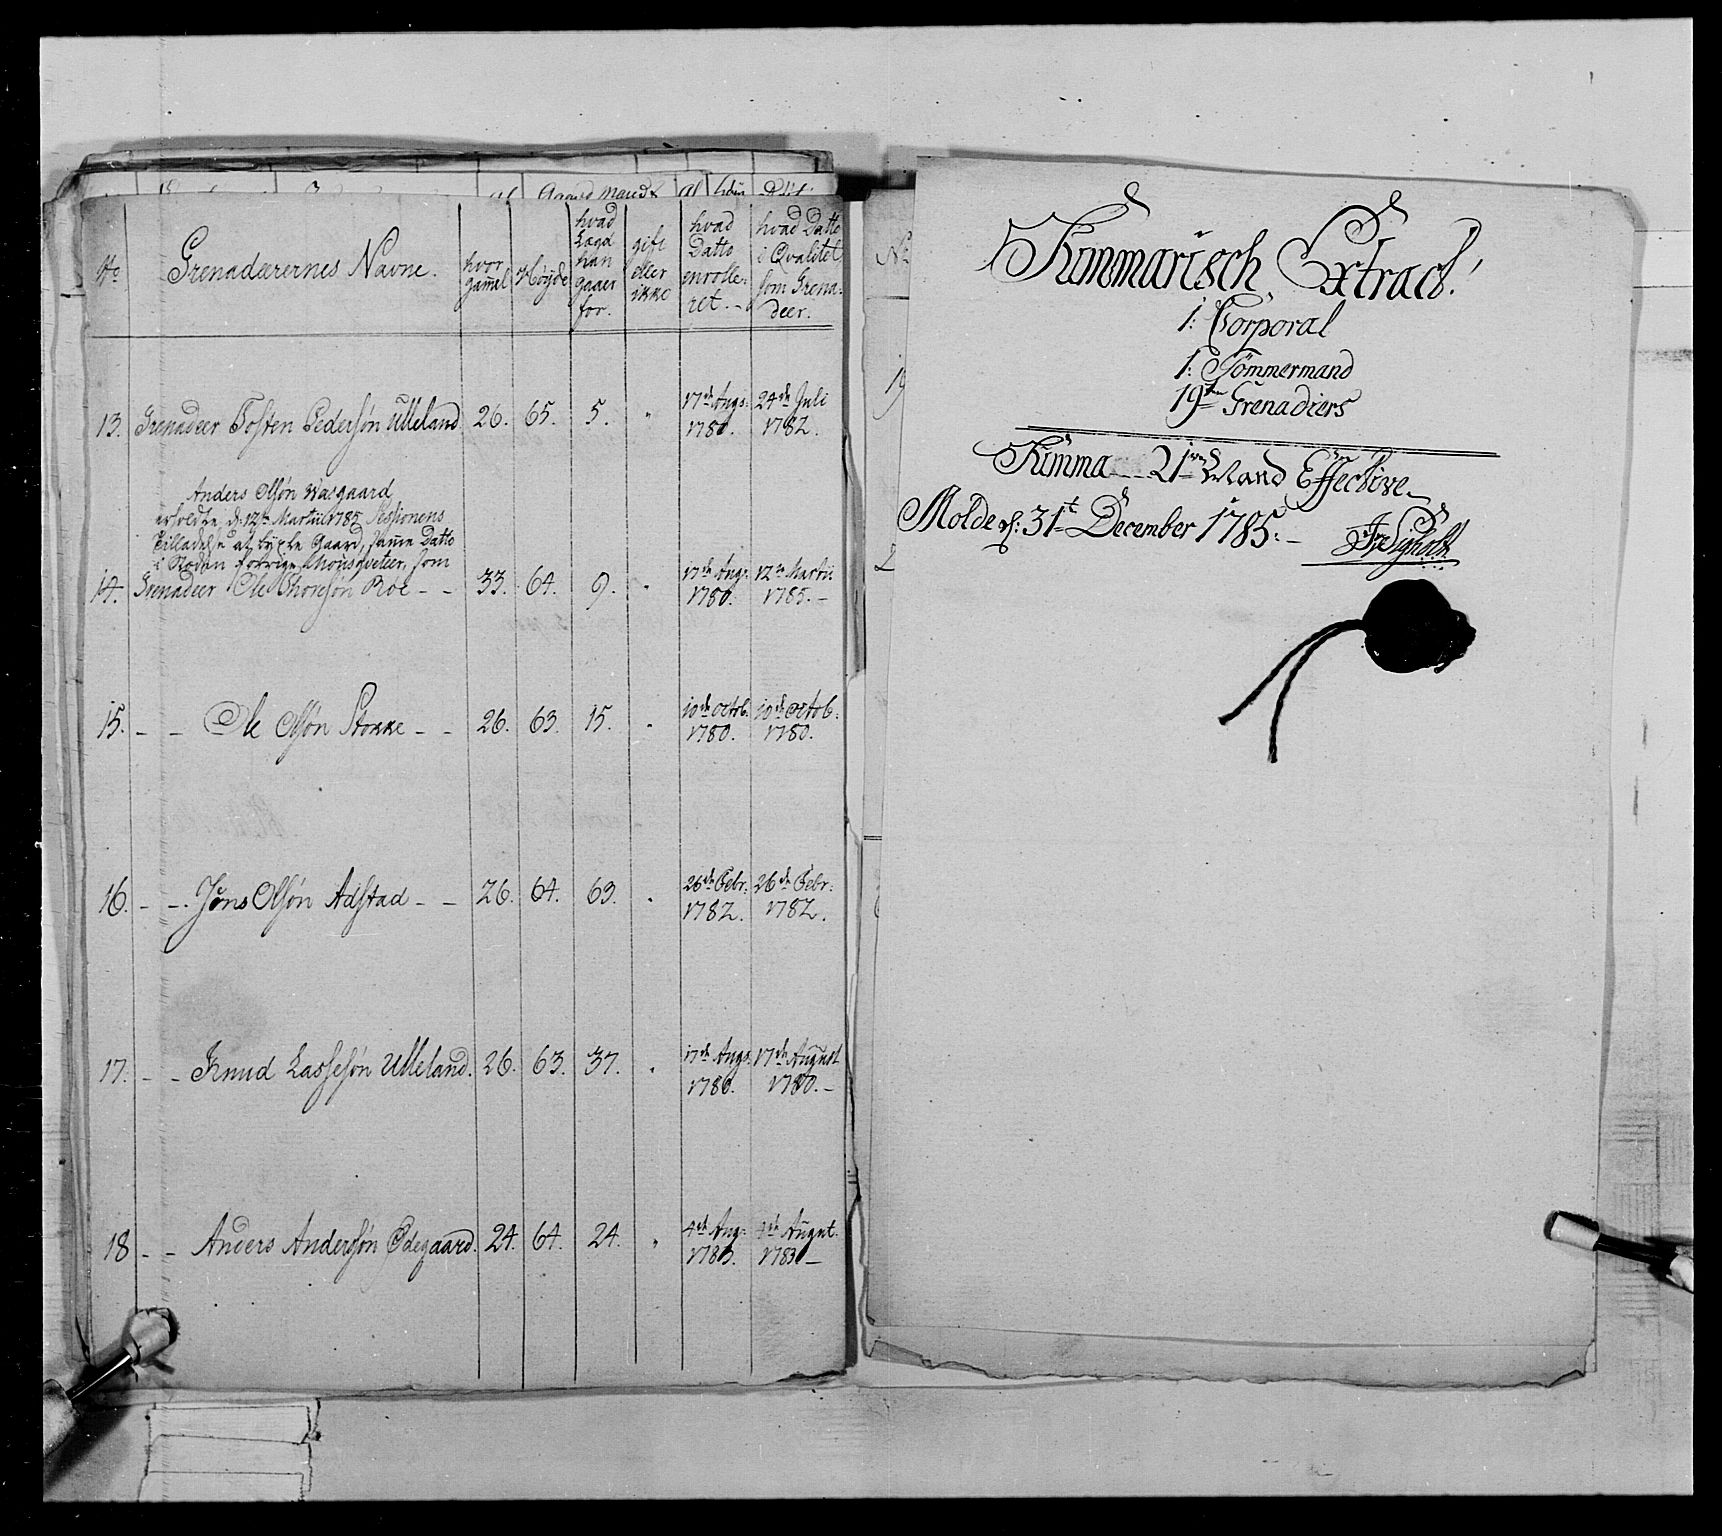 No
Grenadærernes Navne.
hvor gamel
Høyde
hvad Lægd han gaaer for.
gift eller ikke
hvad Datto enrolle: ret.
hvad Datto i Qvalitet som Grena: deer.
13. Grenadeer Tosten Pedersøn Ulleland 26. 65. 5. " 17de Augs: 1780. 24de Juli 1782.
Anders Olsøn Wasgaard
erholdte d: 12te Martii 1785 Sessionens
Tilladelse at bÿxle Gaard, samme Datto
i Stæden forrige Mousqveteer, som
14. Grenadeer Ole Thoresøn Roe - - 33. 64. 9. " 17de Augs: 1780. 12te Martii 1785. -
15. - - Ole Olsøn Stokke - - 26. 63. 15. " 10de Octob. 1780. 10de Octob: 1780.
16. - - Jøns Olsøn Adstad - - 26. 64. 63. " 26de Febr: 1782. 26de Febr: 1782.
17. - - Knud Lassesøn Ulleland. 26. 63. 37. " 17de Augs: 1780. 17de August 1780. -
18 - - Anders Andersøn Ødegaard. 24. 64. 24. " 4de Aug: 1783. 4de August. 1783 -
Summarisch Extract.
1: Corporal
1: Tömmermand
19ten Grenadiers
Summa - - 21 Mand Effective
Molde d: 31t December 1785. -